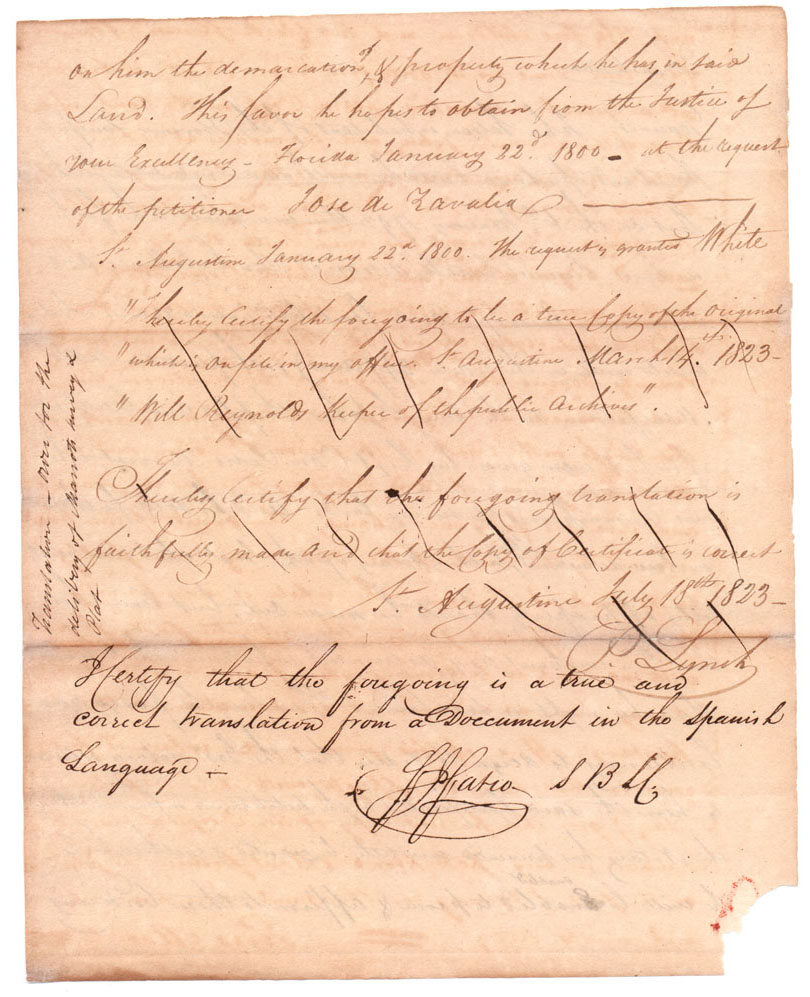 on him the demarcation of, & property which he has in said
Land. This favor he hopes to obtain from the Justice of
your Excellency - Florida January 22d. 1800 - at the request
of the petitioner Jose de Zavalia
St. Augustine January 22d. 1800. The request is granted White
"I hereby Certify the foregoing to be a true Copy of the original
"which is on file in my office. St. Augustine March 14th. 1823-
"Will Reynolds Keeper of the public archives".
I hereby Certify that the foregoing translation is
faithfully made and that the Copy of Certificate is correct
St. Augustine July 18th 1823-
P. Lynch
I Certify that the foregoing is a true and
correct translation from a Doccument in the Spanish
Language -
S B L C.
Translation - over for the
delivery of survey &
Plat